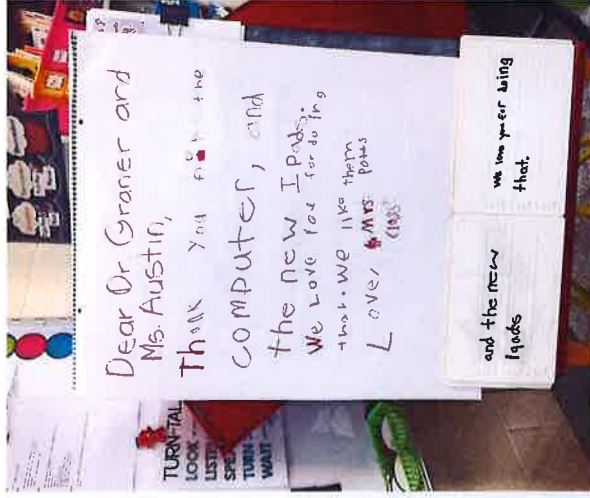 Dear Dr Graner and
Ms. Austin,
Thank You for the
computer, and
the new Ipads.
We Love You for doing
that. We like them
Love, Mrs. Potts
Class
and the new
Ipads
we love you for doing
that.
TURN-TAL
LOOK
LIST
SPE
TURN
WAIT